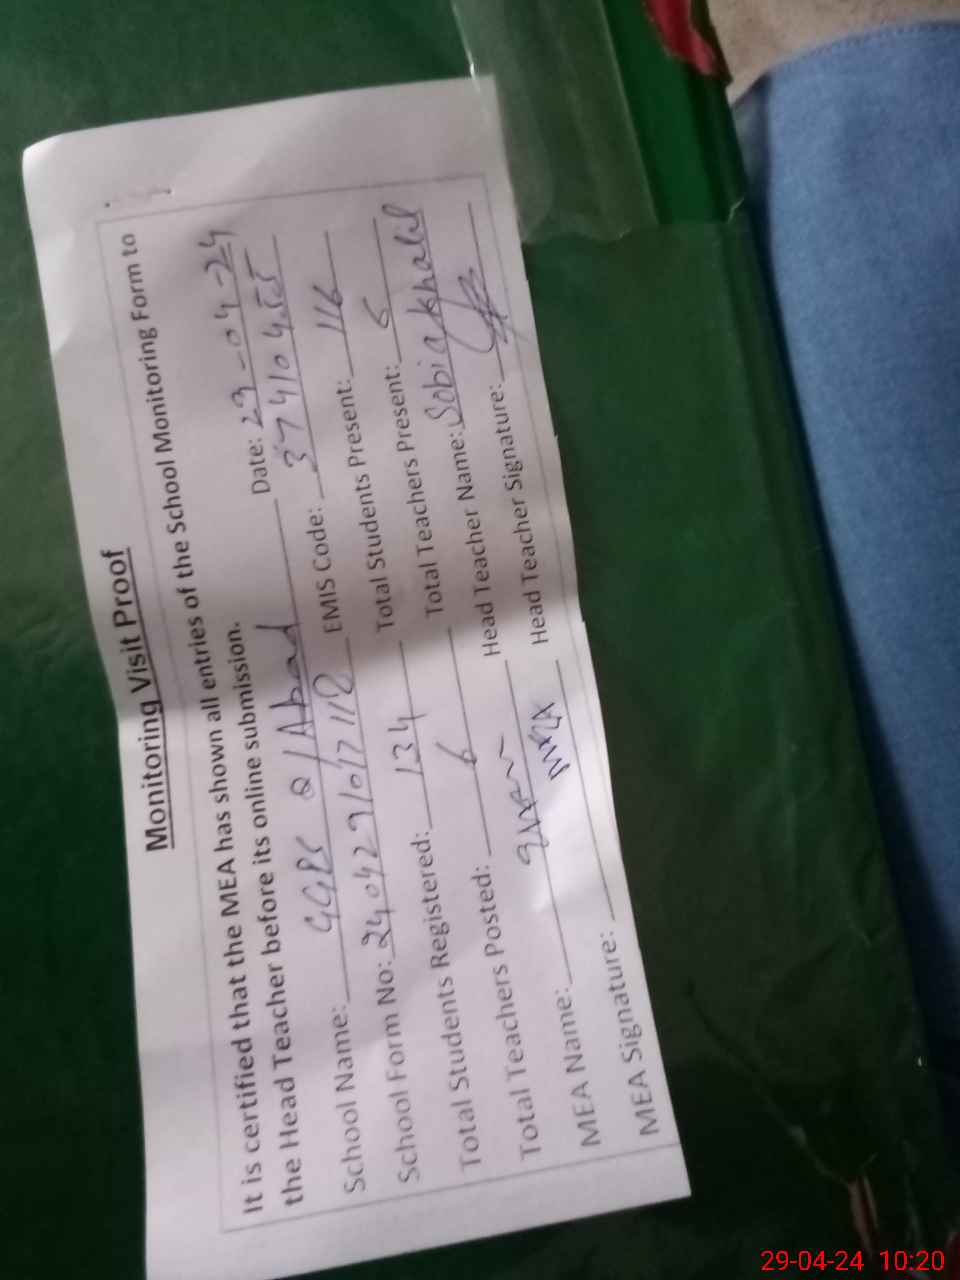 Monitoring Visit Proof
It is certified that the MEA has shown all entries of the School Monitoring Form to
the Head Teacher before its online submission.
School Name: GGPS Q/Abad Date: 29-04-24
School Form No: 24042910171112 EMIS Code: 37410455
Total Students Registered: 134 Total Students Present: 116
Total Teachers Posted: 6 Total Teachers Present: 5
MEA Name: Head Teacher Name: Sobia Khalil
MEA Signature: Head Teacher Signature:
29-04-24 10:20